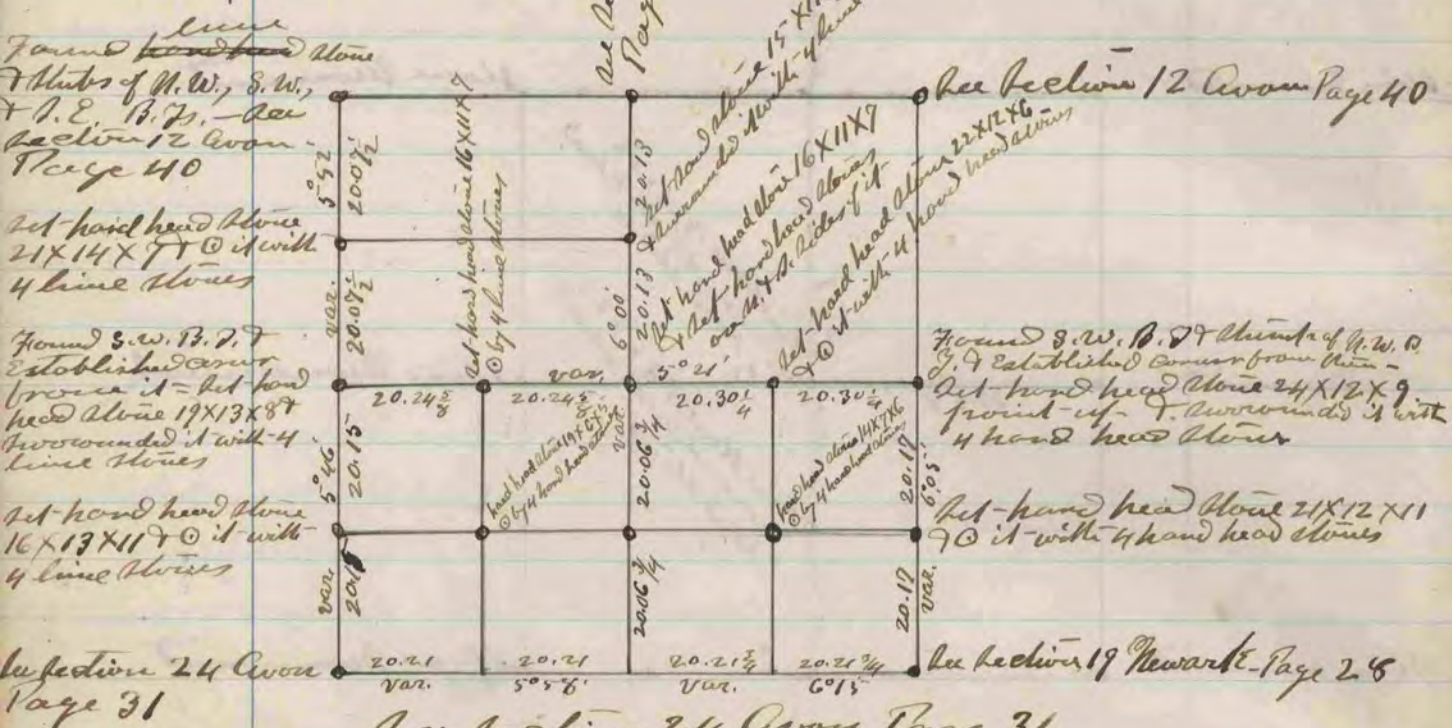 lime
Found hard head stone
& stubs of N.W., S.W.,
& S.E. B.Ts. - See
Section 12 Avon -
Page 40
Set hard head stone
21X14X7 & ⊙ it with
4 lime stones
Found S.W. B.T. &
Established corner
from it - Set hard
head stone 19X13X8 &
surrounded it with 4
lime stones
Set hard head stone
16X13X11 & ⊙ it with
4 lime stones
See Section 24 Avon
Page 31
5°52
20.07½
var.
20.07½
5°46'
20.15
var.
Set hard head stone 16X11X7
⊙ by 4 lime stones
See
Page
20.13
6°00'
20.13
Set hard stone 15X11
& surrounded it with 4 lime
Set hard head stone 16X11X7
& set hard head stones
on N. & S. sides of it
Set hard head stone 22X12X6
& ⊙ it with 4 hard head stones
20.24⅝
var.
20.24⅝
5°21'
20.30¼
20.30¼
hard head stone
⊙ by 4 hard head stones
var.
20.06¾
20.06¾
hard head stone 14X7X6
⊙ by 4 hard head stones
20.17
6°05'
20.17
var.
20.21
20.21
20.21¾
20.21¾
Var.
5°58'
Var.
6°15'
See Section 12 Avon Page 40
Found S.W. B.T & stump of N.W. B
T. & Established corner from them -
Set hard head stone 24X12X9
point up & surrounded it with
4 hard head stones
Set hard head stone 21X12X11
& ⊙ it with 4 hard head stones
See Section 19 Newark - Page 28
See Section 24 Avon Page 31